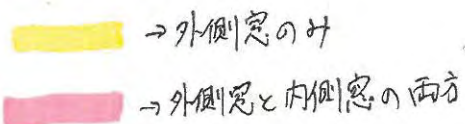 →外側窓のみ
→外側窓と内側窓の両方